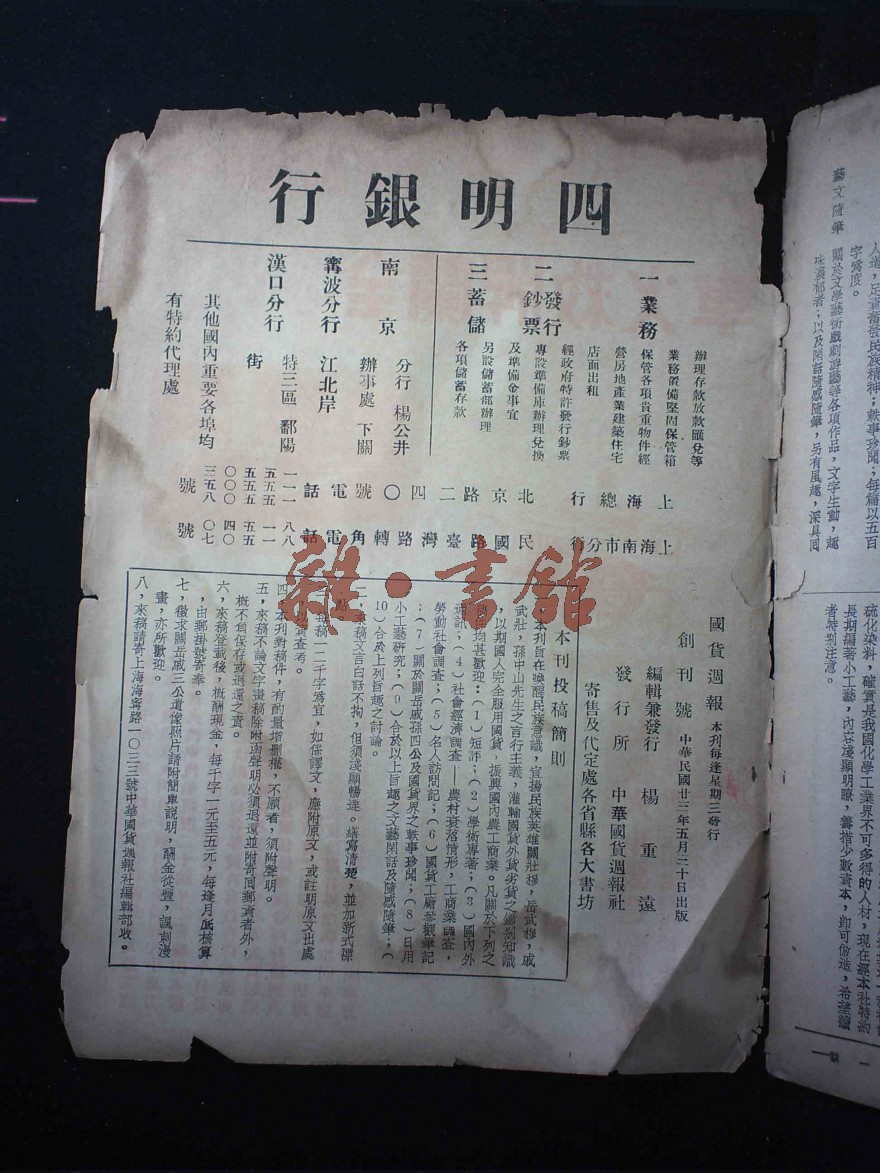 四明銀行
一業務
辦理存款放款匯兌等
業務置備堅固保管箱
保管各項貴重物件經
營房地產業建築住宅
店面出租
二發行鈔票
經政府特許發行鈔票
專設準備庫辦理兌換
及準備金事宜
三蓄儲
另設儲蓄部辦理
各項儲蓄存款
南京
分行 楊公井
辦事處 下關
寗波分行 江北岸
漢口分行 特三區鄱陽
街
其他國內重要各埠均
有特約代理處
上海總行 北京路二四〇號 電話
一五五〇三
一五五〇五
一五五〇八
號
上海南市分行 民國路臺灣路轉角 電話
八一五四〇
八一五〇七
號
國貨週報 本刊每逢星期三發行
創刊號 中華民國廿三年五月三十日出版
編輯兼發行 楊重遠
發行所 中華國貨週報社
寄售及代定處各省縣各大書坊
本刊投稿簡則
本刊旨在喚醒民族意識,宣揚民族英雄關壯穆,岳武穆,戚
武莊,孫中山先生之言行主義,灌輸國貨外貨劣貨之鑑別知識
,以期國人完全服用國貨,振興國內農工商業。凡關於下列之
均甚歡迎:(1)短評;(2)學術專著;(3)國內外
通訊;(4)社會經濟調查——農村衰落情形,工商業調查,
勞動社會調查;(5)名人訪問記;(6)國貨工廠參觀筆記
;(7)關於關岳戚孫四公及國貨界之軼事珍聞;(8)日用
小工藝研究;(9)合於以上旨趣之文藝閑話及隨感隨筆;(
10)合於上列旨趣之討論。
二,來稿文言白話不拘,但須淺顯暢達。繕寫清楚,並加新式標
點
每稿一二千字爲宜,如係譯文,應附原文,或註明原文出處
以資查考。
四,本刊對稿件,有酌量增刪權,不願者,須附聲明。
五,來稿不論文字畫稿除附函聲明必須退還並附寄囘郵資者外,
概不負保存或退還之責。
六,來稿登載後,概酬現金,每千字一元至五元,每逢月底核算
,由郵掛號寄奉。
七,徵求關岳戚三公遺像照片請附簡單說明,酬金從豐,諷刺漫
畫,亦所歡迎。
八,來稿請寄上海海寗路一〇三三號中華國貨週報社編輯部收。
雜·書館
藝文隨筆
關於文學藝術戲劇游藝等各項作品,文字生動,趣
味濃郁者;以及閑話隨感隨筆,另有風趣,深具囘
人道,足資奮發民族精神;軼事珍聞;每篇以五百
字爲度。
硫化染料,確實是我國化學工業界不可多得的人材,現在經本社特約
長期編著小工藝,內容淺顯明瞭,籌措少數資本,卽可倣造,希望讀
者特別注意。